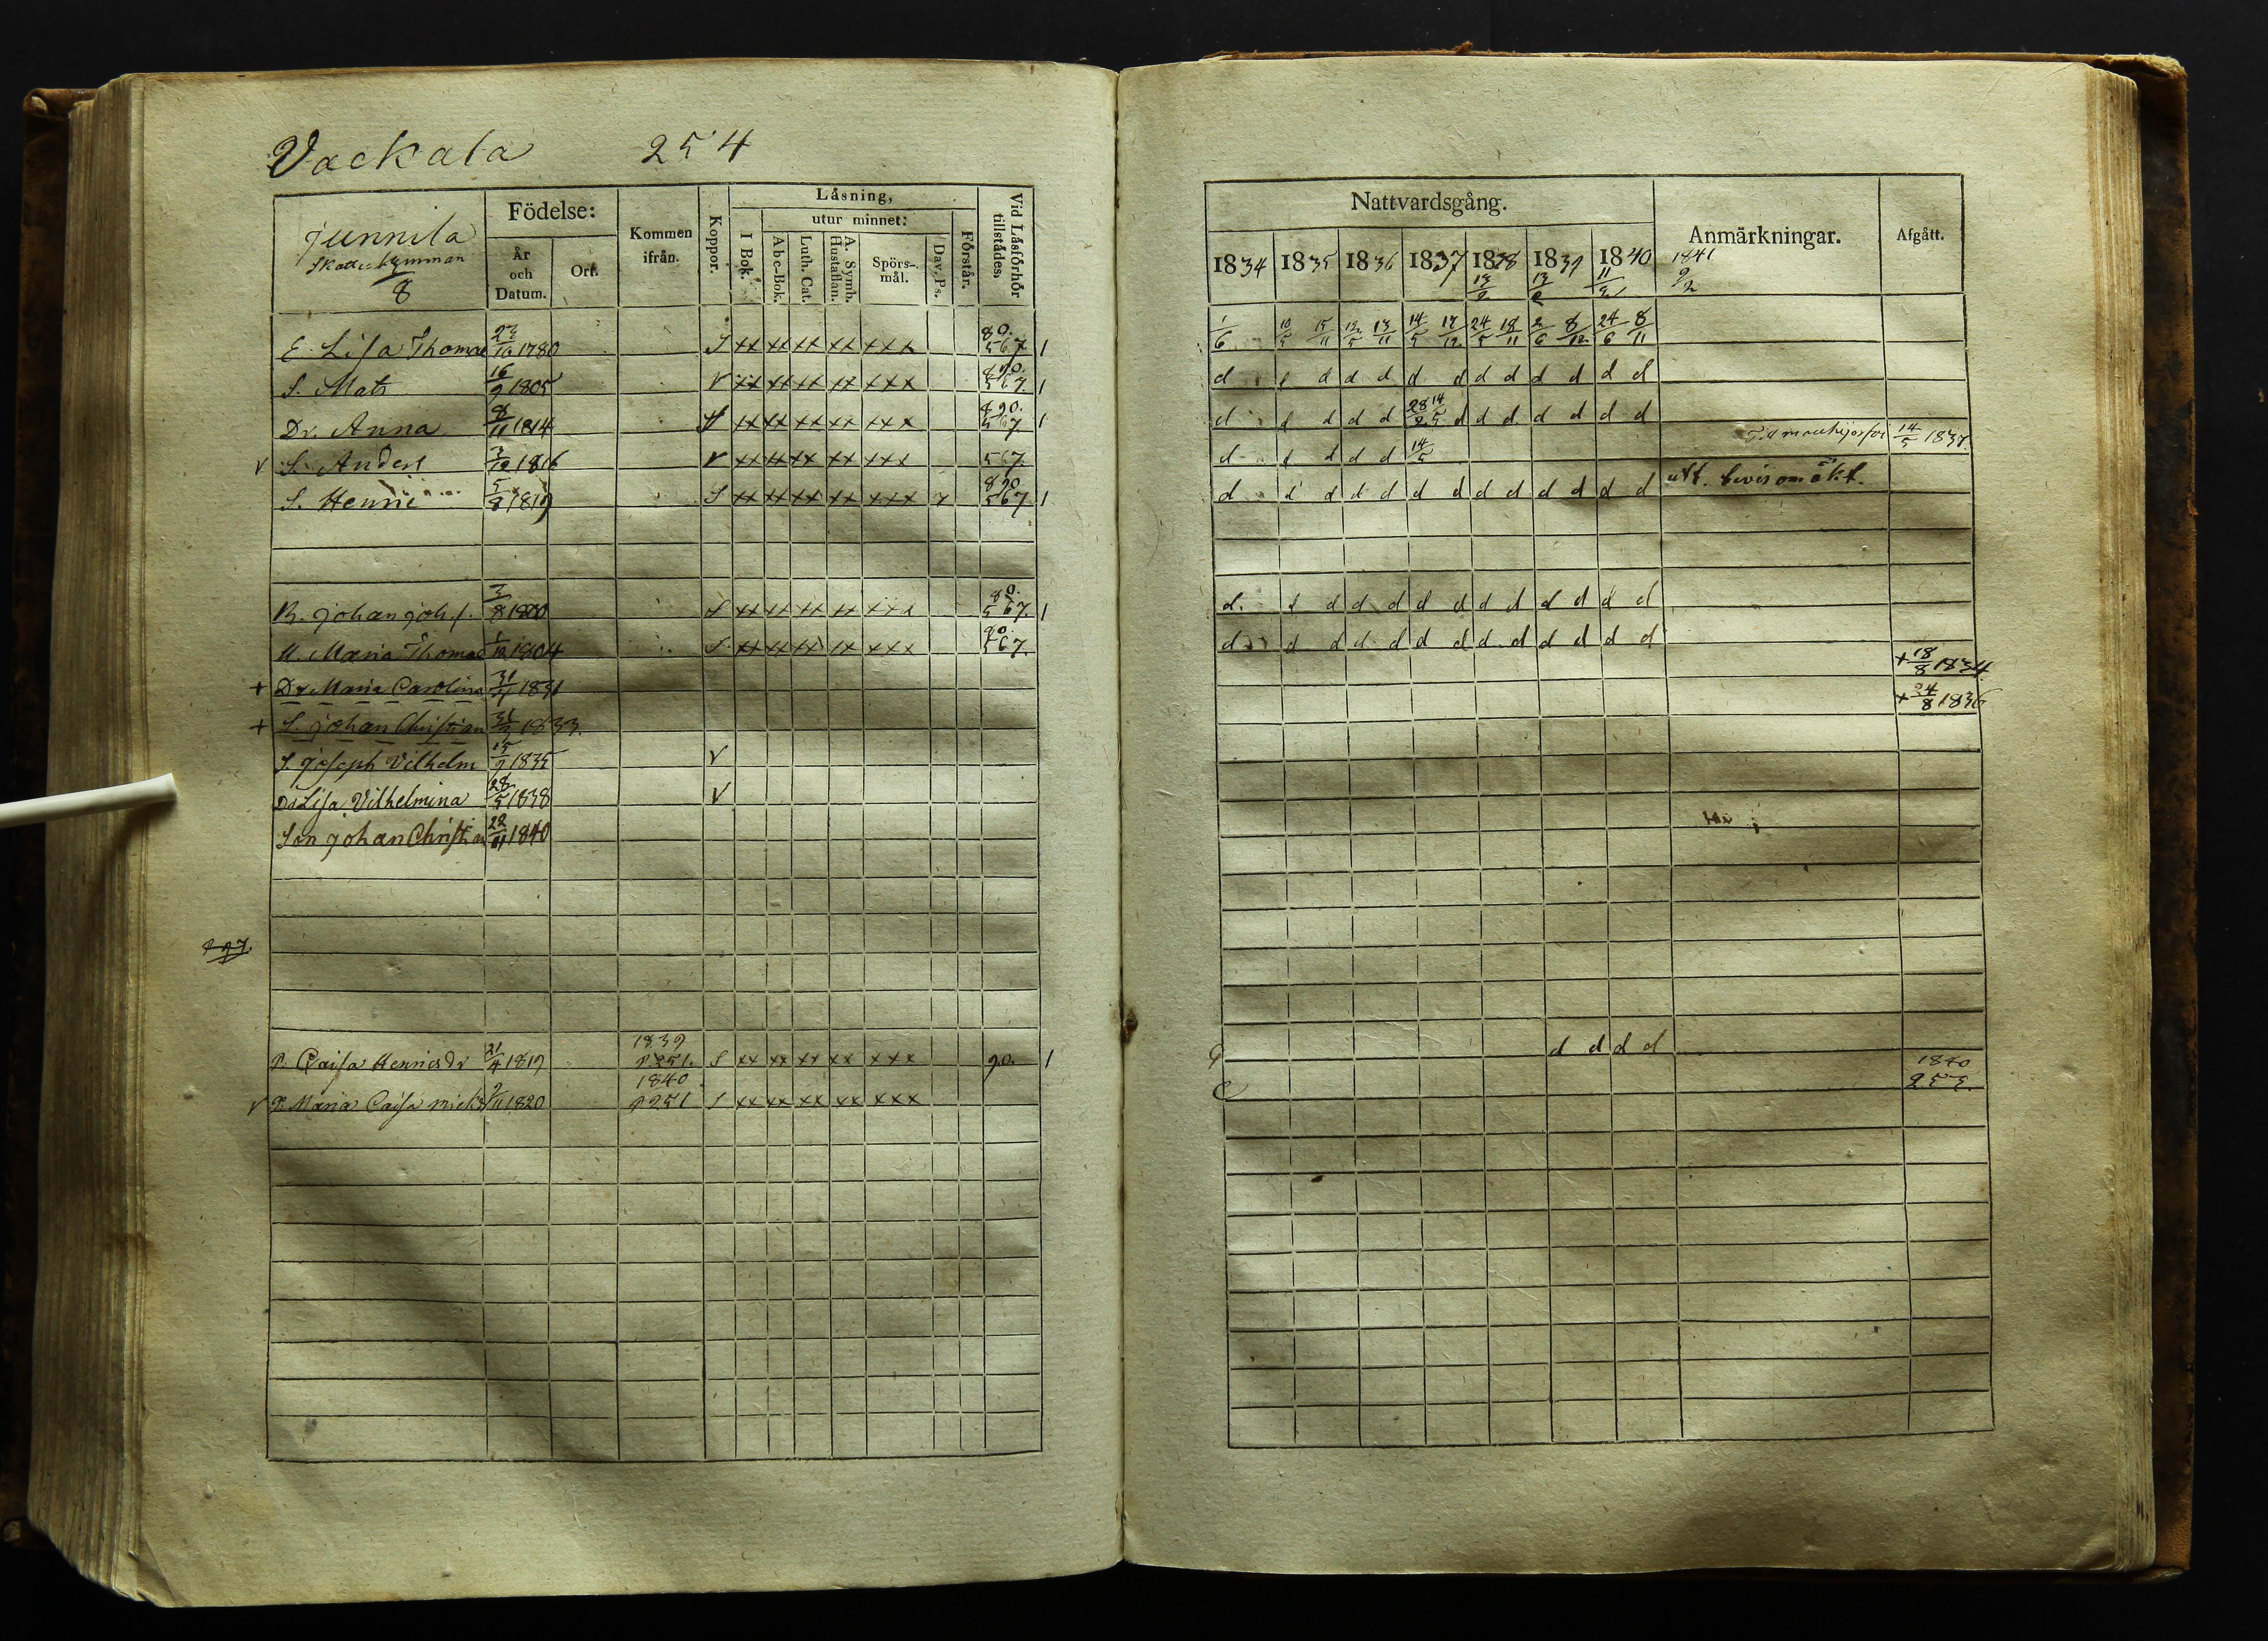 Vackala 254
Junnila
Skatte hemman
3/8
Födelse:
År och Datum.
Ort.
Kommen ifrån.
Koppor.
Läsning,
I Bok.
utur minnet:
Abc-Bok.
Luth. Cat.
A. Symb. Hustaflan.
Spörs-mål.
Dav. Ps.
Förstår.
Vid Läsförhör tillstädes.
E. Lisa Thomae 23/10 1780 S xx xx xx xx xxx 80. 567 1
S. Mats 16/9 1805 v xx xx xx xx xxx 890. 567 1
Dr. Anna 8/11 1814 xx xx xx xx xxx 890. 567 1
v S. Anders 3/12 1816 v xx xx xx xx xxx 567.
S. Henric 5/8 1819 S xx xx xx xx xxx 890 567 1
B. Johan Joh. s. 3/8 1800 S xx xx xx xx xxx 80. 567. 1
H. Maria Thomae 1/12 1804 S xx xx xx xx xxx 567.
+ Dr Maria Carolina 1831
+ S. Johan Christian 1833.
S. Joseph Vilhelm 15/9 1835 v
Dr Lisa Vilhelmina 28/5 1838 v
Son Johan Christian 22/11 1840
P. Caisa Henricsdr 21/4 1819 1839 p 251. S xx xx xx xx xxx 90. 1
v P. Maria Caisa 9/11 1820 1840 p 251 S xx xx xx xx xxx
Nattvardsgång.
Anmärkningar.
Afgått.
1834 1835 1836 1837 1838 1839 1840 1841
13/2 13/2 11/2 9/2
1/6 10/5 15/11 12/5 13/11 14/5 17/12 24/5 18/11 2/6 8/12 24/6 8/11
d d d d d d d d d d d d d
d d d d d 28/2 14/5 d d d d d d d
d d d d d 14/5 14/5 1837.
d d d d d d d d d d d d d att. bevis om äkt.
d. d d d d d d d d d d d d
d d d d d d d d d d d d d
+ 18/8 1834
+ 24/8 1836
d d d d
1840
253.